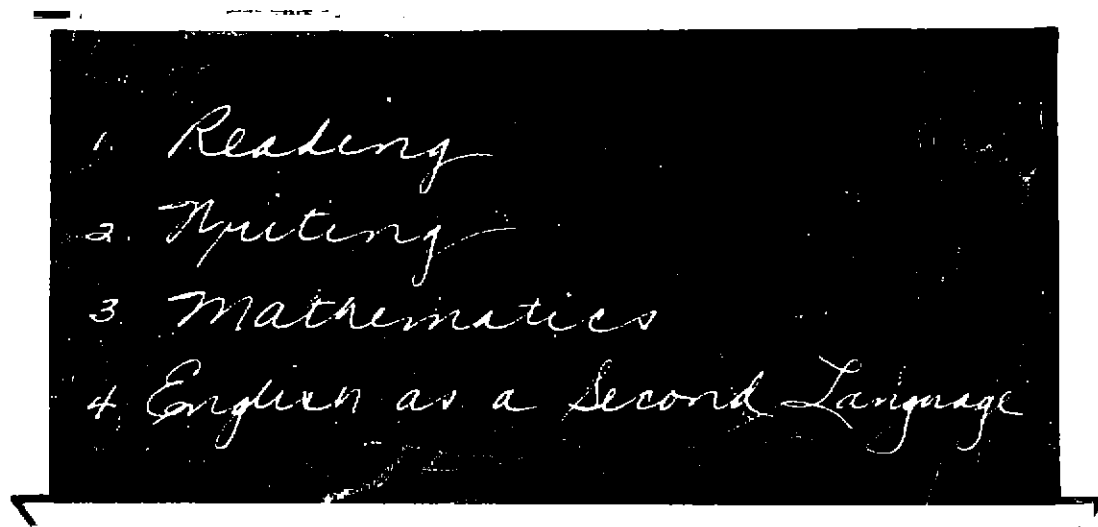 1. Reading
2. Writing
3. Mathematics
4. English as a Second Language